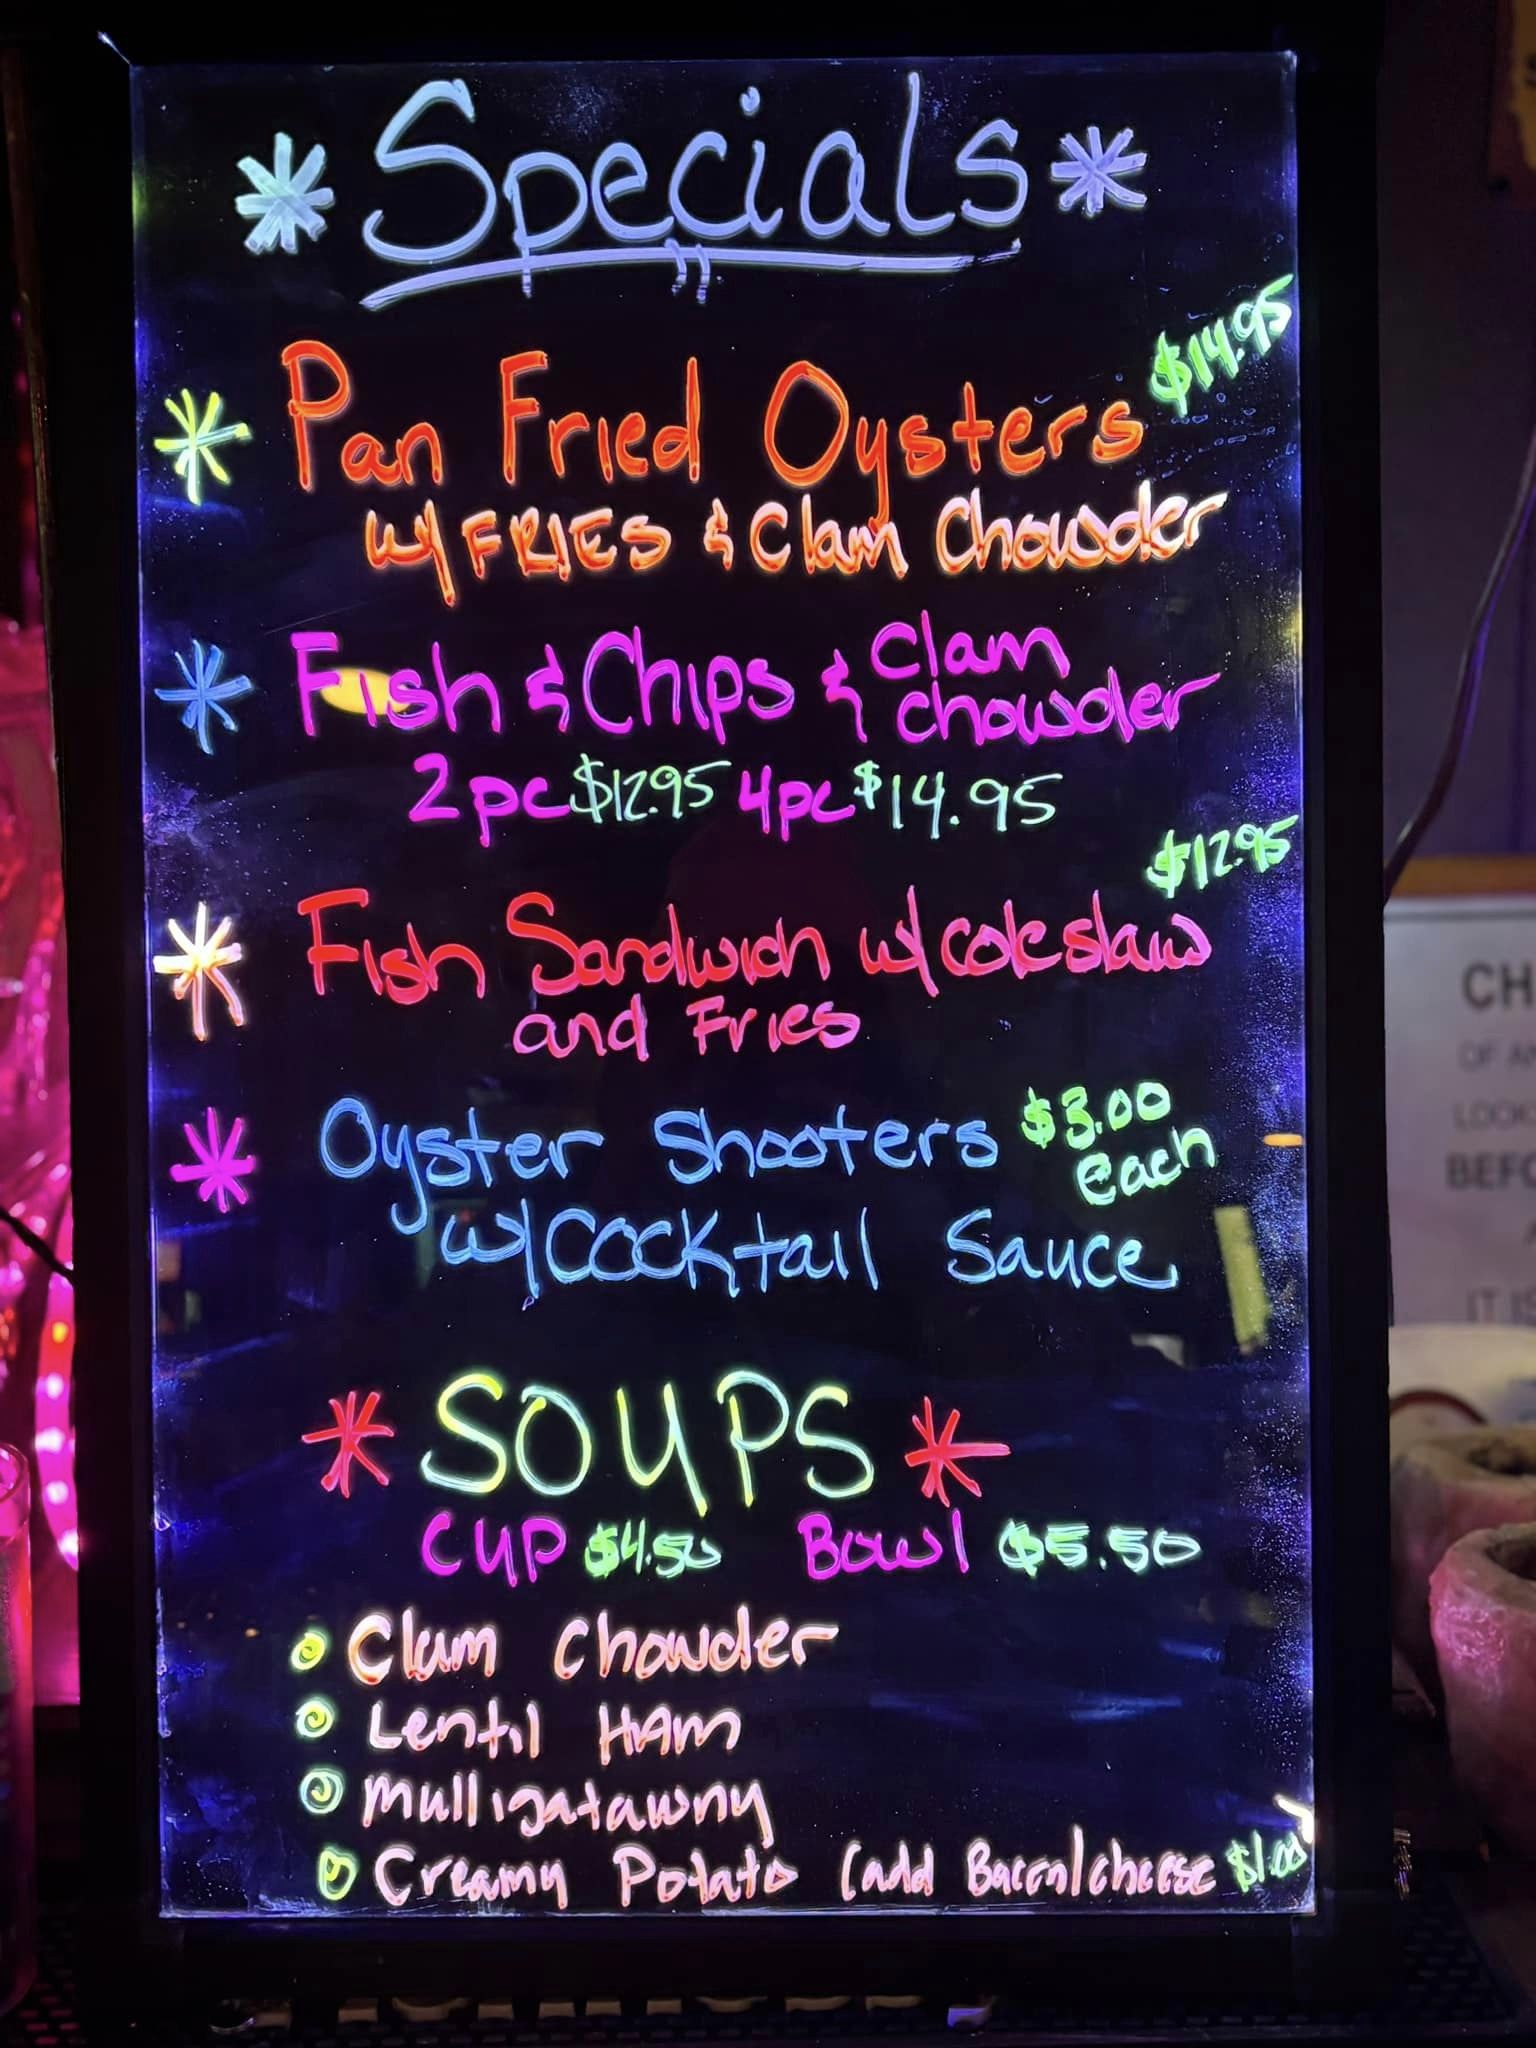 Specials
$14.95
Pan Fried Oysters
w/ FRIES & Clam Chowder
Fish & Chips & Clam
chowder
2pc $12.95 4pc $14.95
$12.95
Fish Sandwich w/ coleslaw
and Fries
Oyster Shooters $3.00
each
w/ Cocktail Sauce
SOUPS
CUP $4.50 Bowl $5.50
Clam Chowder
Lentil HAM
Mulligatawny
Creamy Potato (add Bacon/cheese $1.00)
CH
OF AN
LOOK
BEFO
IT IS